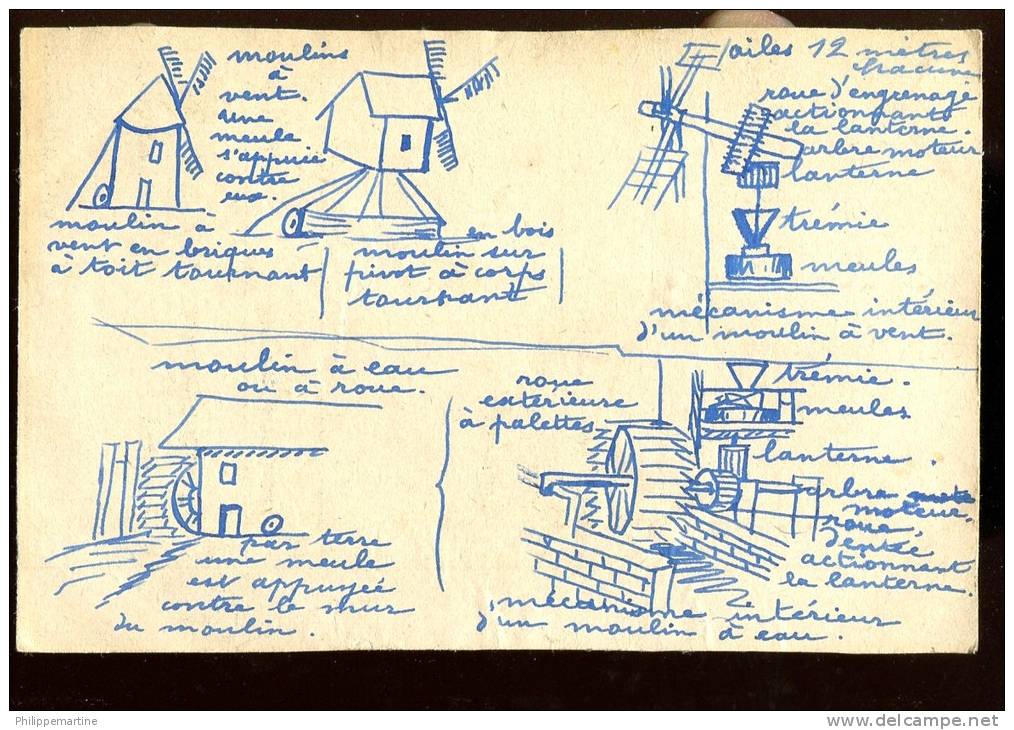 moulins
à
vent.
une
meule
s'appuie
contre
eux.
moulin à
vent en briques
à toit tournant
en bois
moulin sur
pivot à corps
tournant
ailes 12 mètres
chacune
roue d'engrenage
actionnant
la lanterne.
arbre moteur
lanterne
trémie
meules
mécanisme intérieur
d'un moulin à vent.
moulin à eau
ou à roue.
par terre
une meule
est appuyée
contre le mur
du moulin.
roue
extérieure
à palettes
trémie.
meules
lanterne.
arbre
moteur.
roue
actionnant
la lanterne.
mécanisme intérieur
d'un moulin à eau.
Philippemartine
www.delcampe.net